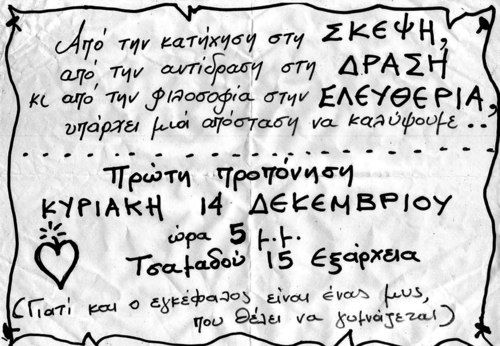 Από την κατήχηση στη ΣΚΕΨΗ,
από την αντίδραση στη ΔΡΑΣΗ
κι από την φιλοσοφία στην ΕΛΕΥΘΕΡΙΑ,
υπάρχει μιά απόσταση να καλύψουμε...
Πρώτη προπόνηση
ΚΥΡΙΑΚΗ 14 ΔΕΚΕΜΒΡΙΟΥ
ώρα 5 μ.μ.
Τσαμαδού 15 Εξάρχεια
(Γιατί και ο εγκέφαλος είναι ένας μυς,
που θέλει να γυμνάζεται)